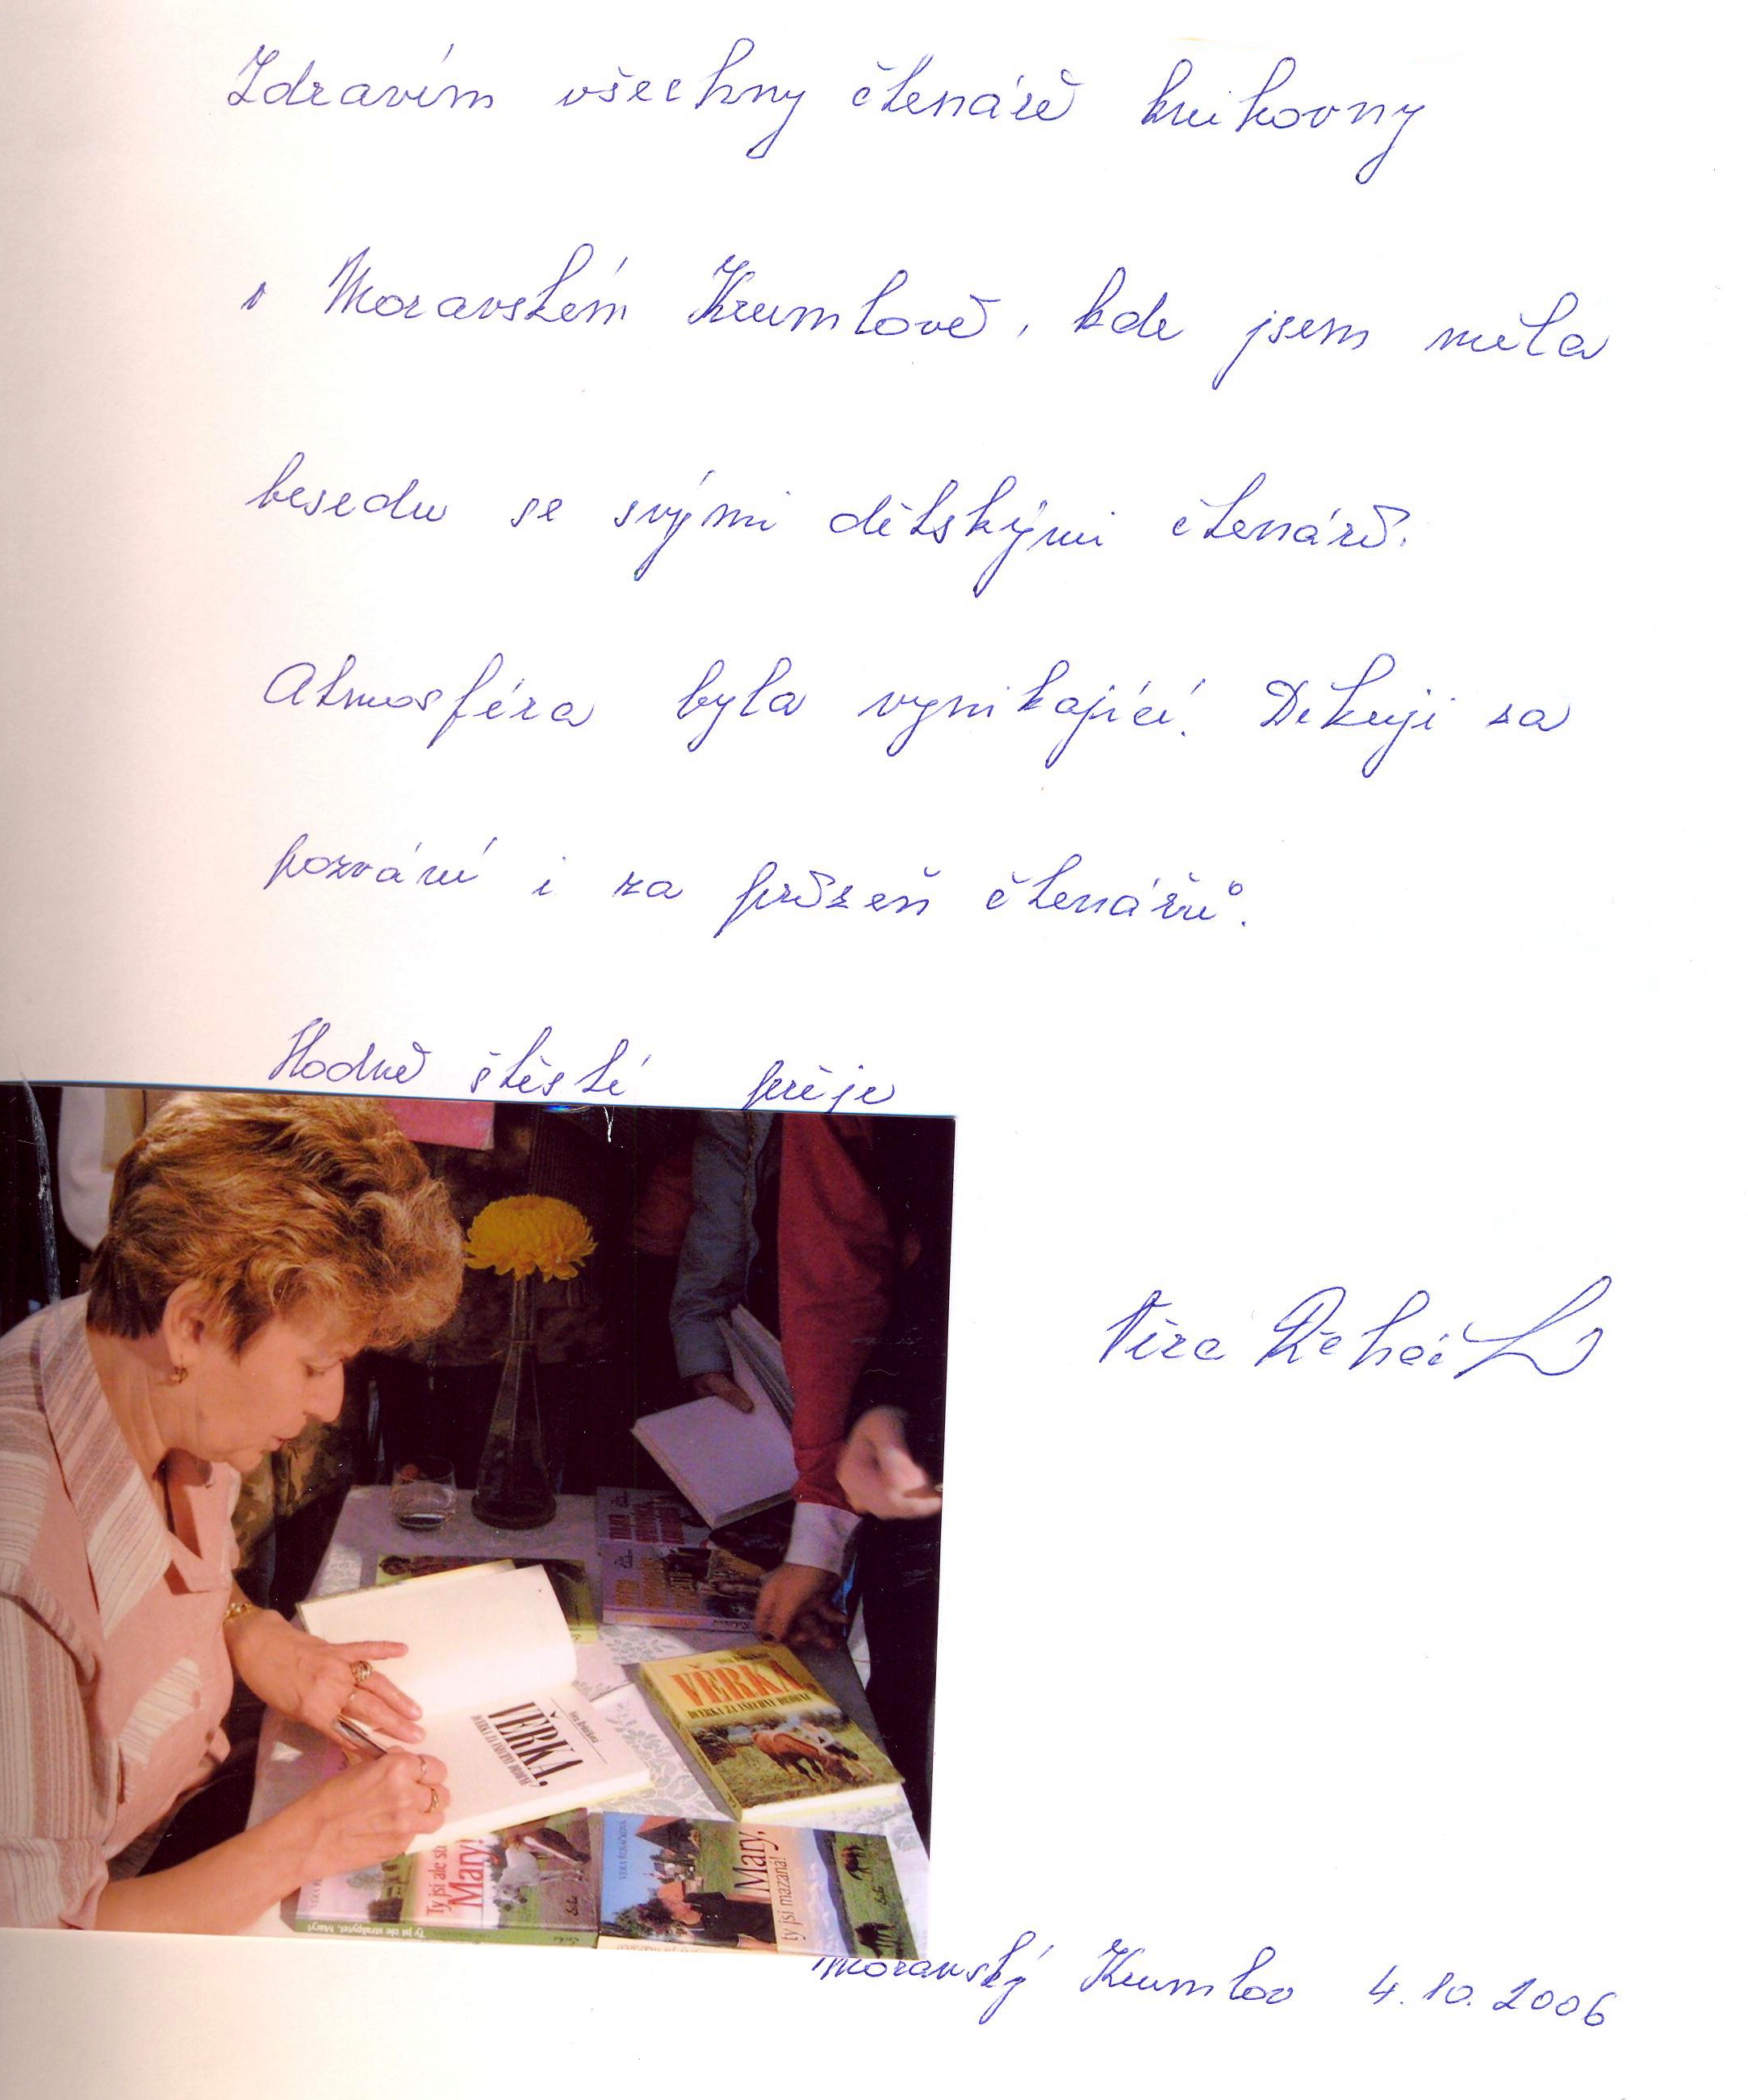 Zdravím všechny čtenáře knihovny
v Moravském Krumlově, kde jsem měla
besedu se svými dětskými čtenáři.
Atmosféra byla vynikající. Děkuji za
pozvání i za přízeň čtenářů.
Hodně štěstí přeje
Věra Řeháčková
VĚRKA,
VĚRKA
Ty jsi ale
Mary!
VĚRA ŘEHÁČKOVÁ
Mary,
ty jsi mazaná!
Moravský Krumlov 4.10.2006